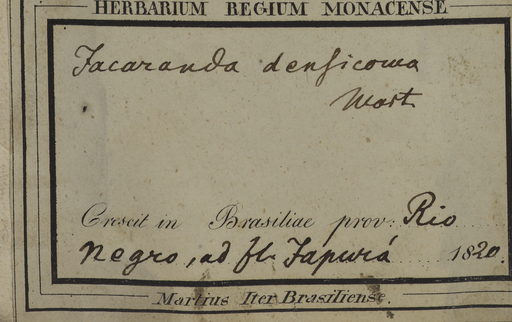 HERBARIUM REGIUM MONACENSE
Jacaranda densicoma
Mart
Crescit in Brasiliae prov: Rio
Negro, ad fl. Japurá 1820.
Martius Iter Brasiliense.